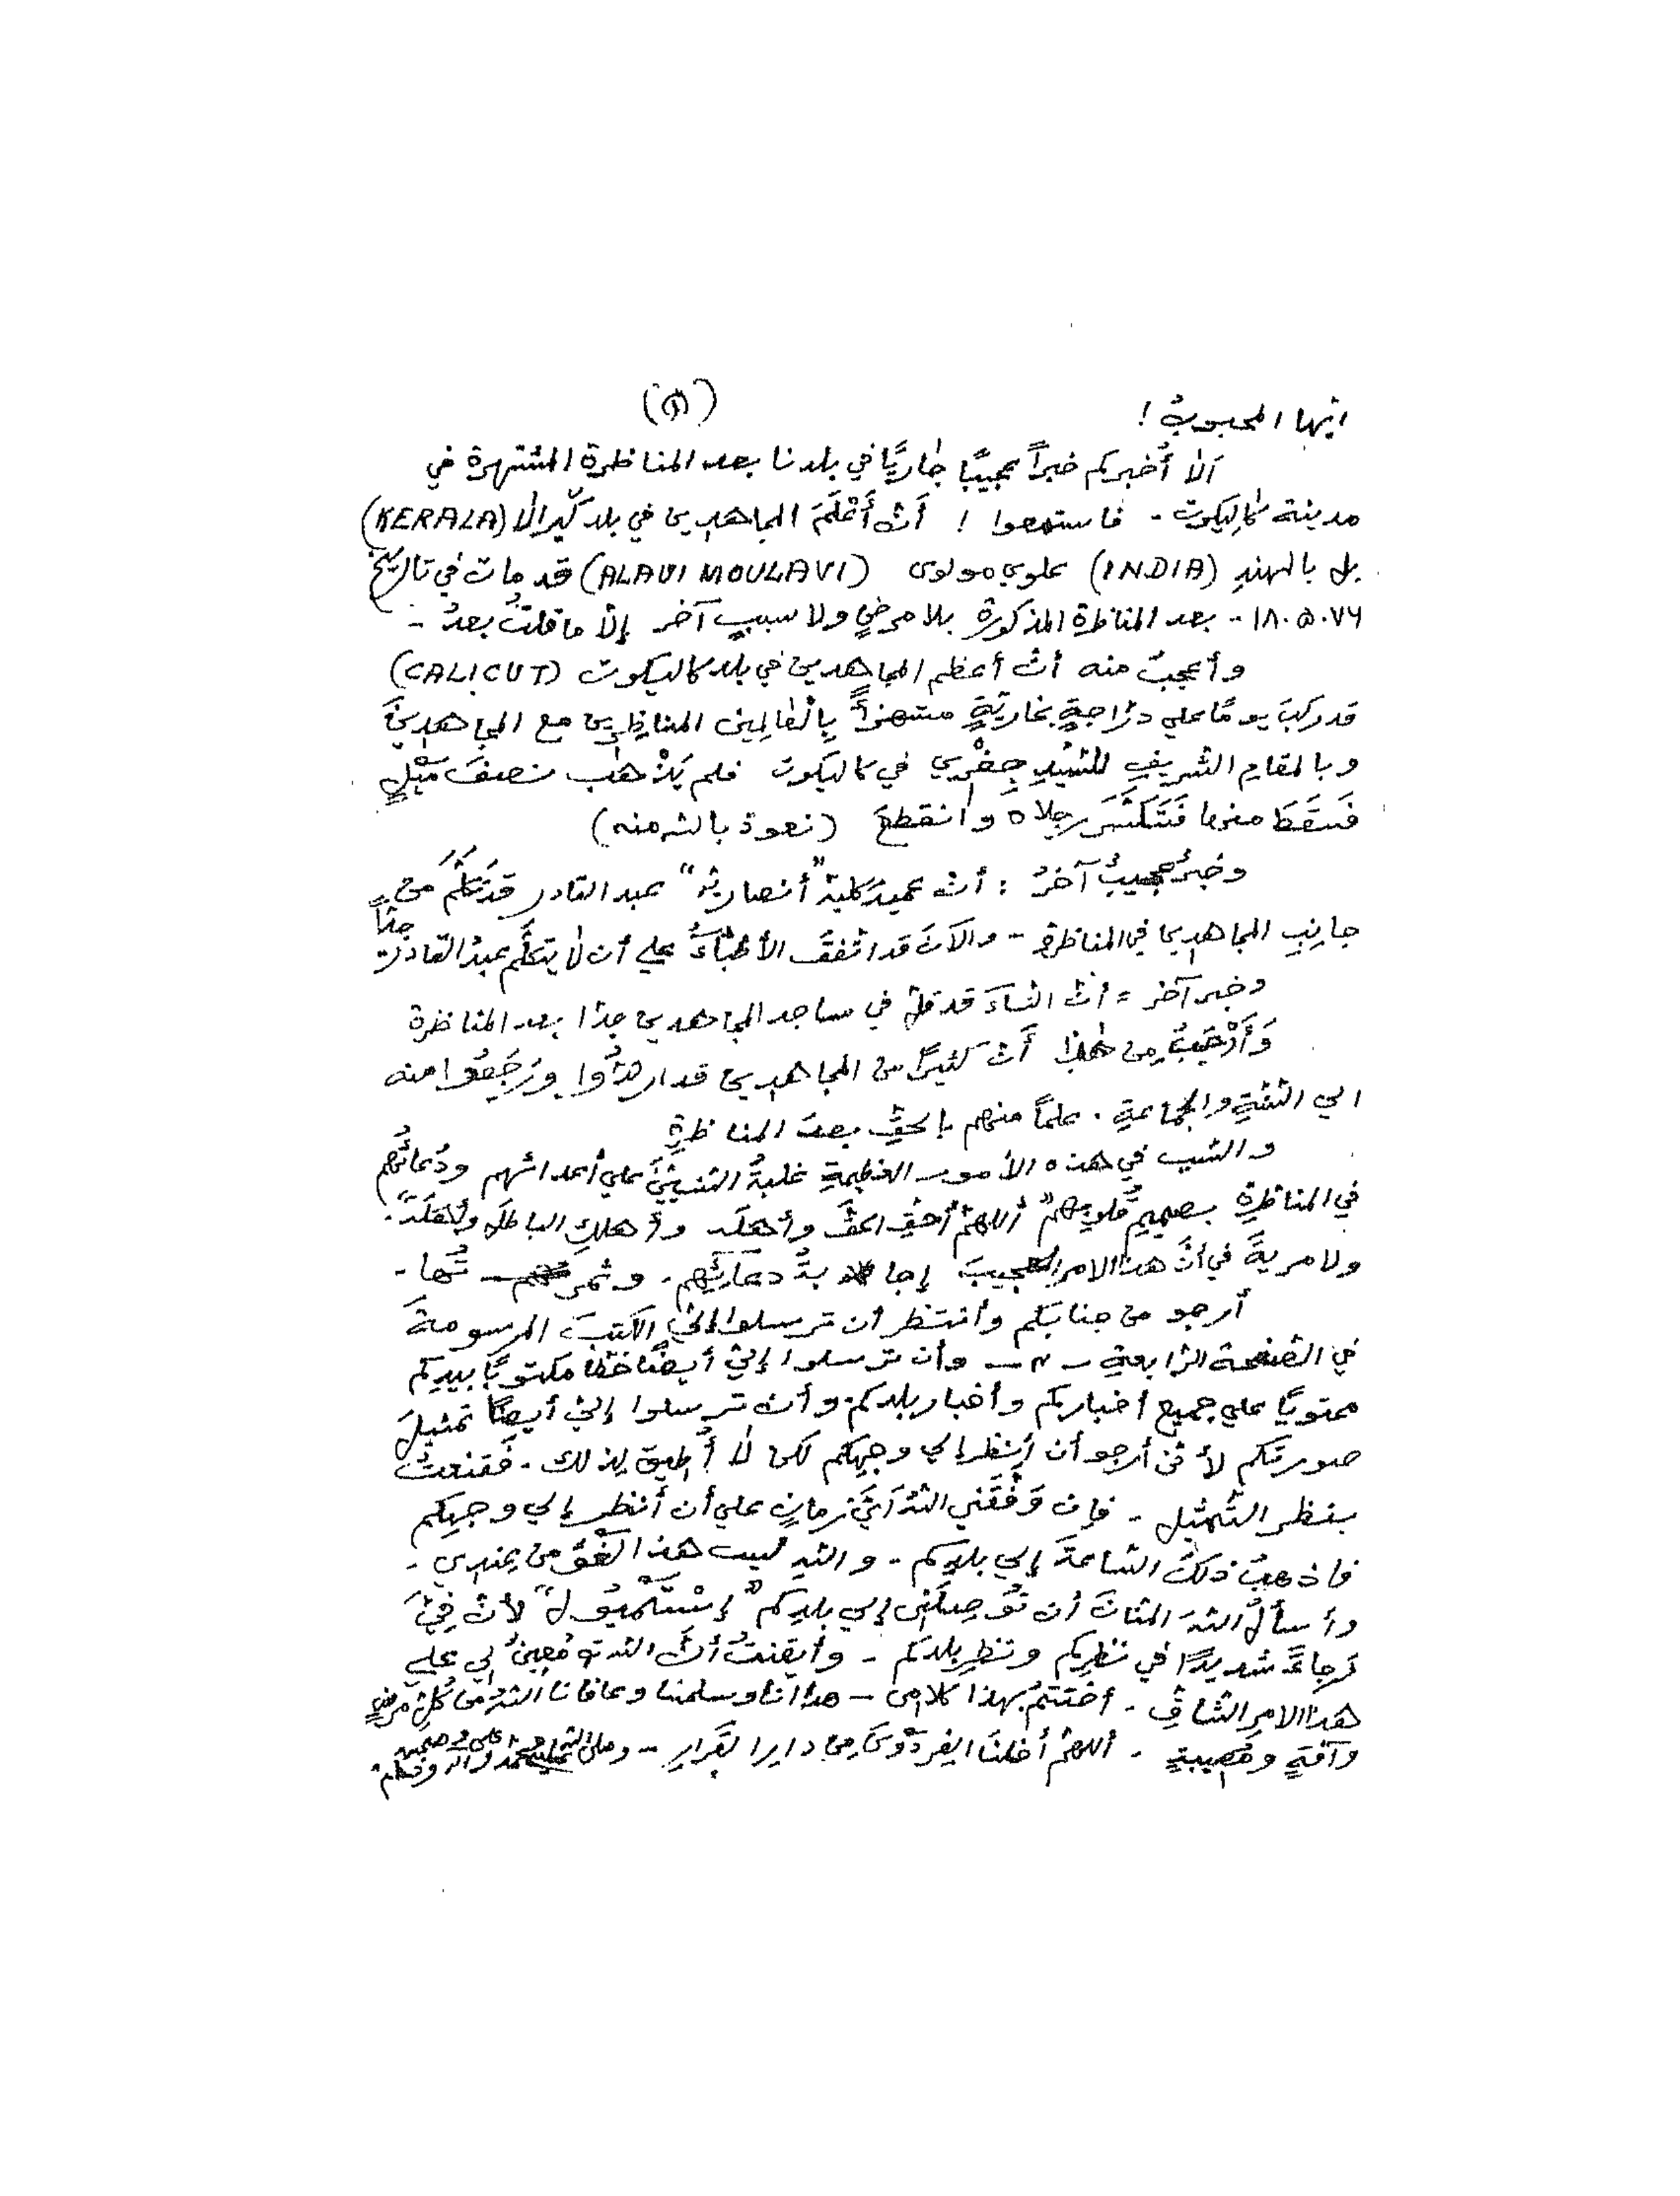 ايها المحبوبُ ! (۵)
اَلاٰ أُخبركم خبراً عجيبًا جٰاريًا في بلدنا بعد المناظرة المشتهرة في
مدينة كٰالِيكوت - فاستمعوا ! أنّ أَعْلَمَ المجاهدين في بلد كيرالا (KERALA)
بل بالهندِ (INDIA) علوي مولوى (ALAVI MOULAVI) قد مات في تاريخ
١٨.۵.٧٦ - بعد المناظرة المذكورة بلا مرضٍ ولا سببٍ آخر إلّا ما قلتُ بعدُ -
وأعجبُ منه أنّ أعظم المجاهدين في بلد كاليكوت (CALICUT)
قد ركبَ يومًا علي درّاجةٍ بخاريّةٍ مستهزأً بِالْعٰالِمِين المناظِرين مع المجاهدينَ
وبالمقام الشريفِ للسّيّدِ جِفْرِي في كاليكوت فلم يَذْهَب نصفَ مَيْلٍ
فَسَقَطَ منها فَتَكَسَّرَ رجلاه وانقطعَ (نعوذ بالله منه)
وخبرٌ عجيبٌ آخرُ : أنّ عميدَ كليةِ "أنصاريه" عبد القادر قد تَكَلَّمَ من
جانِبِ المجاهدين في المناظرةِ - والآنَ قد اتّفقَ الأطبّاءُ علي أن لاٰ يتكلّم عبدُ القادر جدّاً
وخبر آخر = أنّ النساءَ قد قلّ في مساجد المجاهدين جدّا بعد المناظرة
وَأَعْجَبُ مِن هٰذا أَنّ كثيرًا من المجاهدين قد ارتدُّوا ورَجَعُوا منه
الي السّنّةِ والجماعةِ . علماً منهم بالحقِّ بعدَ المناظرةِ
والسّبب في هذه الأمور العظيمةِ غلبةُ السّنيّينَ علي أعدائهم ودُعائُهم
في المناظرةِ بصميمِ قلوبِهم "أللهمّ أحقِّ الحقَّ وأهلَه وأهلكِ الباطلَ وأهلَه" .
ولا مريةَ في أنّ هذا الامر العجيبَ إجابةُ دعائِهِم . وثمرتُها -
أرجو من جنابكم وأنتظر ان ترسلوا إليّ الكتبَ المرسومةَ
في الصّفحة الرّابعةِ - ۴ - وأن ترسلوا إليّ أيضًا خطّا مكتوبًا بيدِكم
محتويًا علي جميع أخباركم وأخبار بلدكم . وأن ترسلوا إليّ أيضًا تمثيلَ
صورتكم لأنّي أرجو أن أنظر إلي وجهِكم لكن لاٰ أُطيق لِذلك . فَقنعتُ
بنظر التّمثيل - فإن وَفَّقَني اللهُ أيَّ زمانٍ علي أن أنظر إلي وجهِكم
فاذهبُ ذلك السّاعةَ إلي بلدِكم - والله ليست هذا القوّة من عندي -
وأسألُ اللهَ المنّانَ أن تُوصِلَني إلي بلدِكم "إستَنْبُول" لأنّ فِيَّ
رجاءً شديدًا في نظرِكم ونظرِ بلدكم - وأيقنتُ أنّ الله مُعينٌ لي علي
هذا الامرِ الشّاقِّ . أختتمُ بهذا كلامى - هدانا وسلمنا وعافانا اللهُ من كُلِّ مرضٍ
وآفةٍ ومُصيبةٍ . أللهمّ أدخلنا الفردوسَ مِن دارِ القرارِ - وصلى الله على محمد وآله وصحبه وسلم .